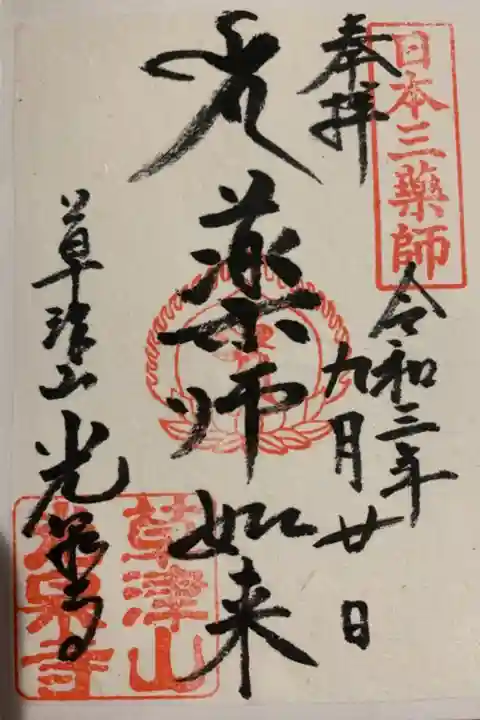 日本三薬師
奉拝
令和三年
九月廿日
薬師如来
草津山光泉寺
草津山
光泉寺